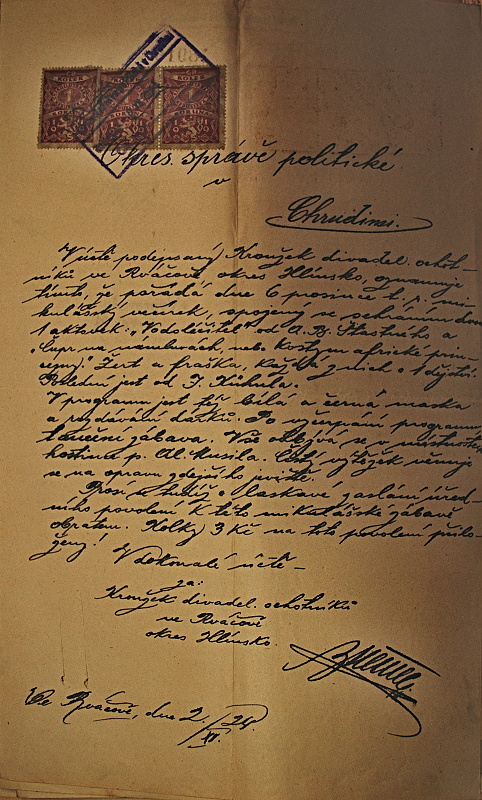 Okres. správě politické
v
Chrudimi.
V úctě podepsaný Kroužek divadel. ochot-
níků ve Rváčově okres Hlinsko, oznamuje
tímto, že pořádá dne 6 prosince t. r. mi-
kulášský večírek, spojený se sehráním dvou
1 aktovek: od A. B. Šťastného a
"Čupr na námluvách, nebo Kostym africké prin-
cezny." Žert a fraška, Každá z nich o 1 dějství.
Poslední jest od J. Kühnla.
V programu jest též bílá a černá maska
a rozdávání dárků. Po vyčerpání programu
taneční zábava. Vše odbývá se v místnostech
hostince p. Al. Musila. Čistý výtěžek věnuje
se na opravu zdejšího jeviště.
Prosí uctivě o laskavé zaslání úřed-
ního povolení k této mikulášské zábavě
obratem. Kolky 3 Kč na toto povolení přilo-
ženy!
V dokonalé úctě -
za:
Kroužek divadel. ochotníků
ve Rváčově
okres Hlinsko.
Ve Rváčově, dne 2./XII. 24.